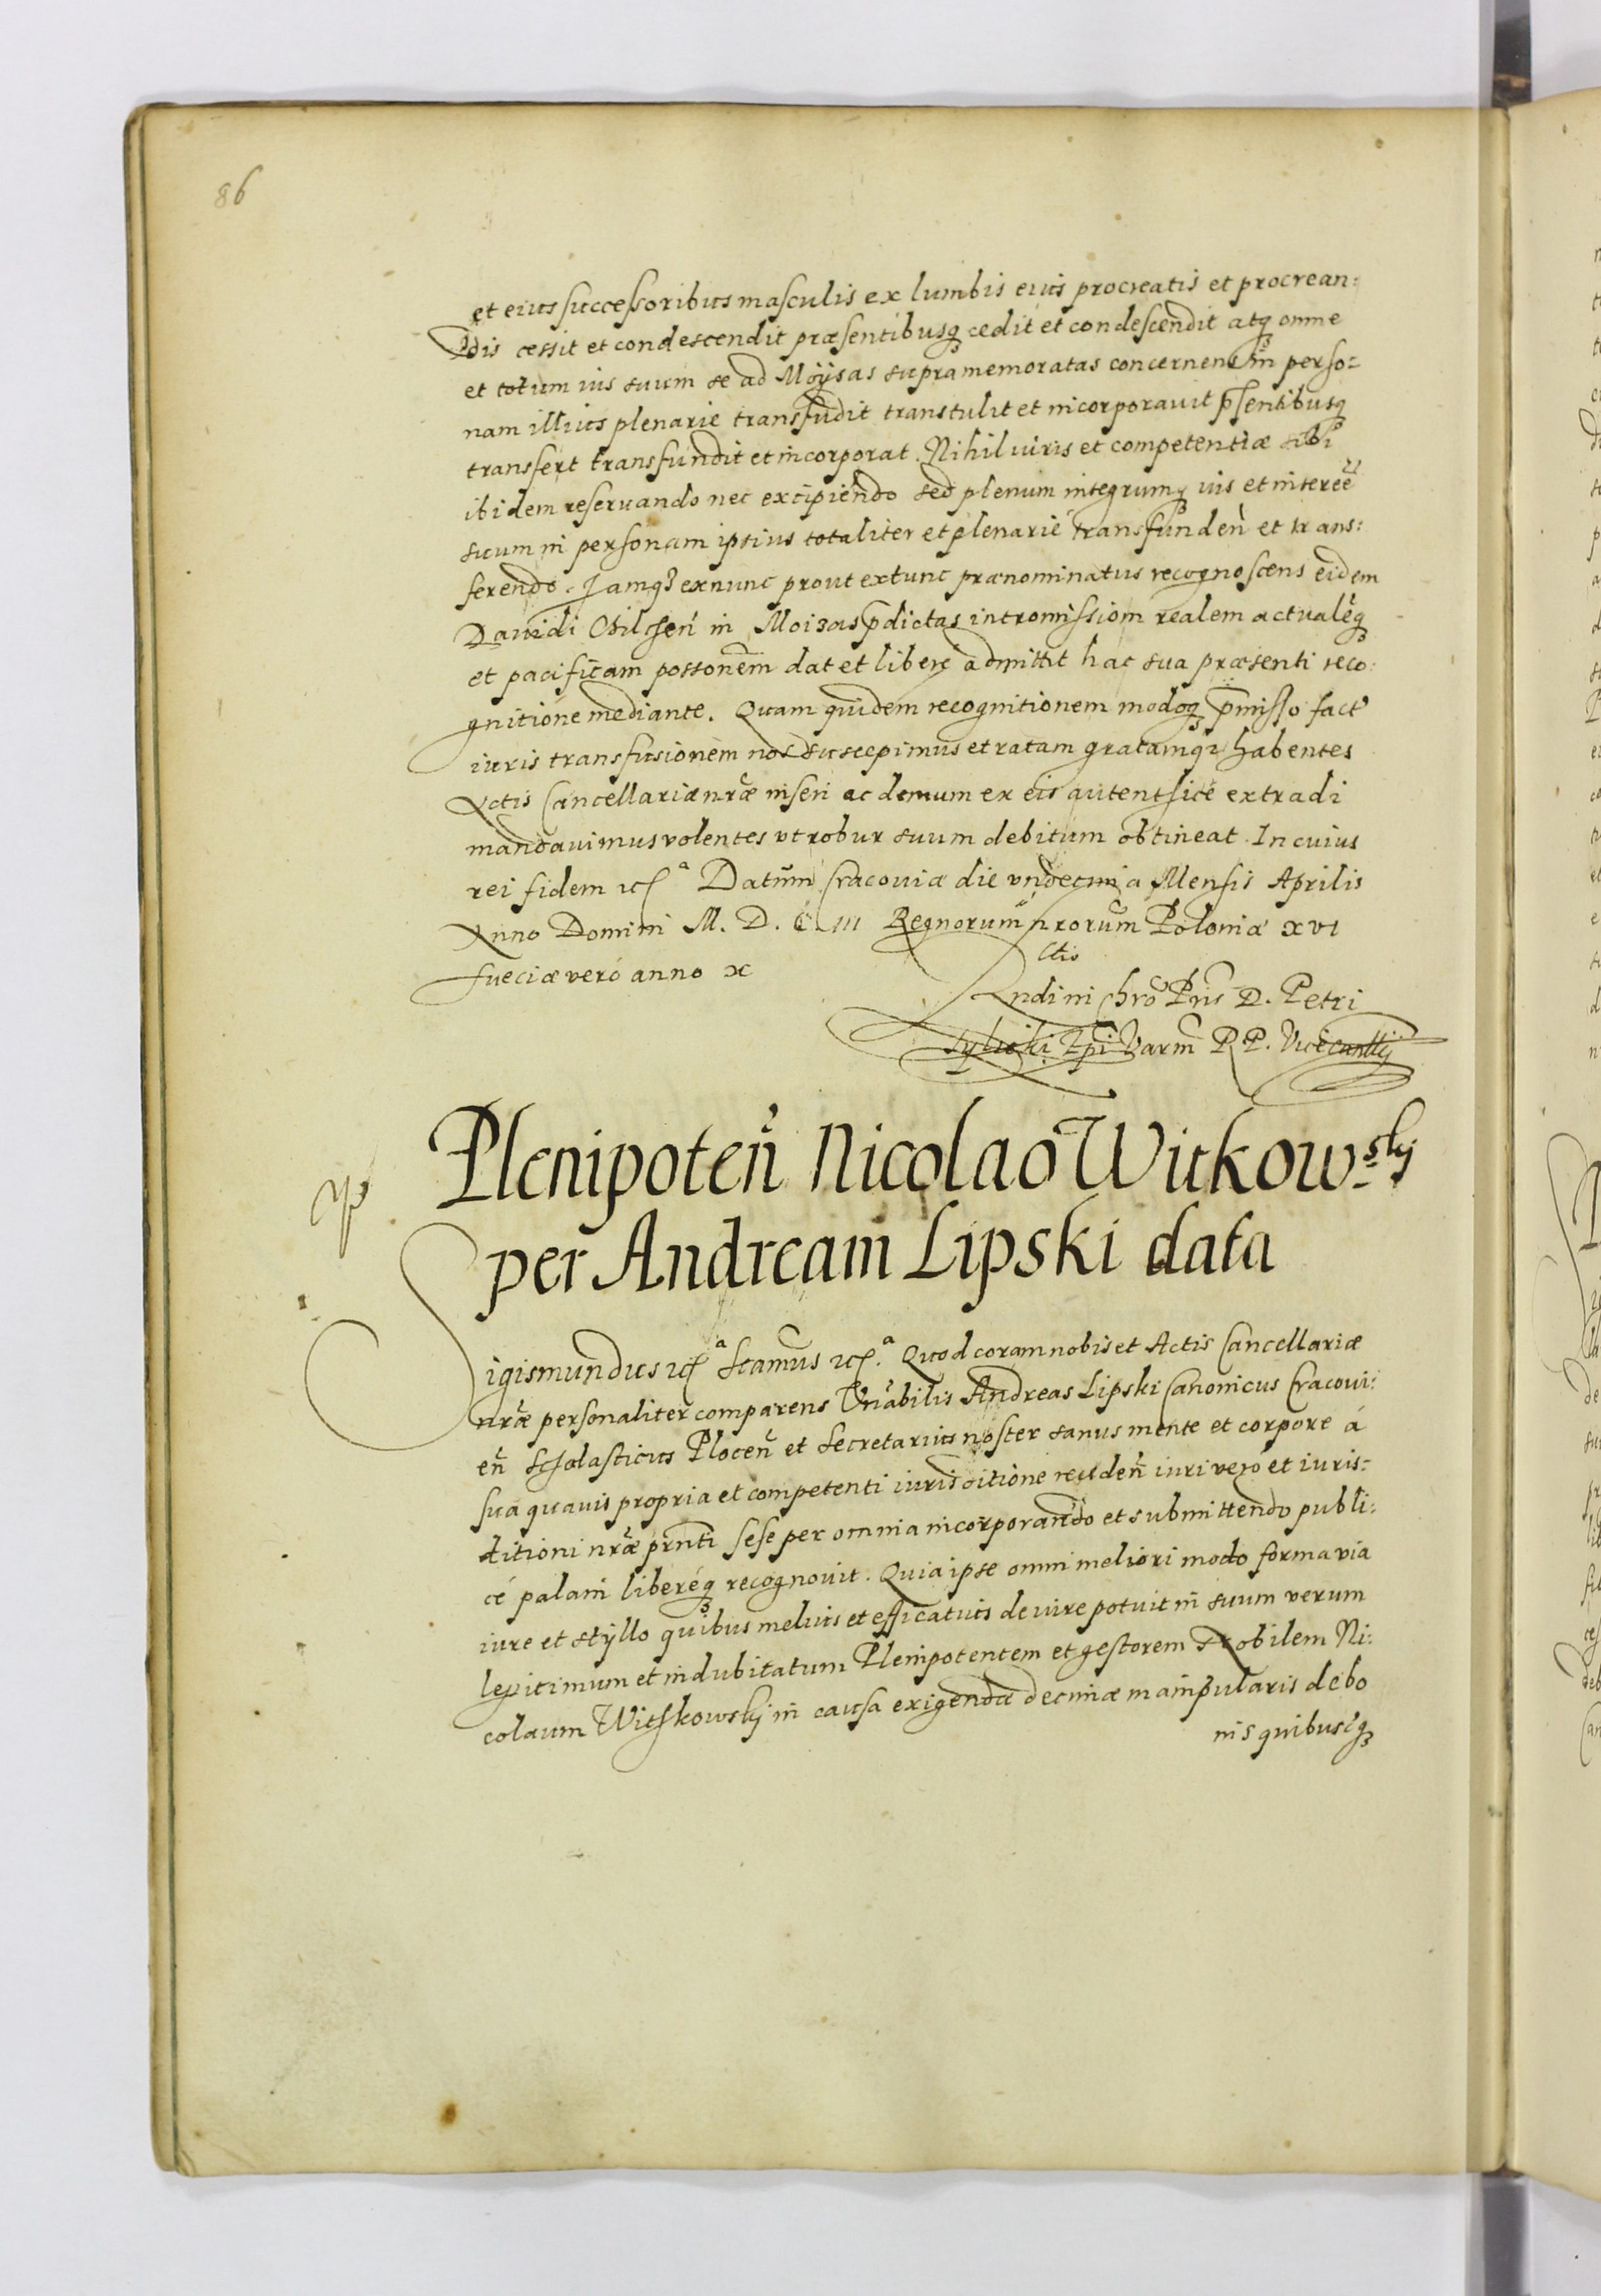 86
et eius successoribus masculis ex lumbis eius procreatis et procrean:
dis cessit et condescendit præsentibusq cedit et condescendit atq omne
et totum ius suum se ad Moÿsas supra memoratas concernens in perso:
nam illius plenarie transfudit transtulit et incorporavit p̄sentibusq
transfert transfundit et incorporat. Nihil iuris et competentiæ sibi
ibidem reservando nec excipiendo sed plenum integrumq ius et intereē
suum in personam ipsius totaliter et plenarié transfunden̄ et trans:
ferendo. Jamq ex nunc prout ex tunc prænominatus recognoscens eidem
Davidi Chilchen̄ in Moizas p̄dictas intromissiom realem actualēq
et pacificam possonem̄ dat et libere admittit hac sua præsenti reco:
gnitione mediante. Quam quidem recognitionem modoq p̄misso fact
iuris transfusionem nos suscepimus et ratam gratamq habentes
Actis Cancellariæ nrǣ inseri ac demum ex eis autenthicé extradi
mandavimus volentes ut robur suum debitum obtineat. In cuius
rei fidem etcª Datum Cracoviæ die undecima Mensis Aprilis
Anno Domini M. D. C. III Regnorum nrorum̄ Poloniæ xvi
Sueciæ veró anno x
Rndi in Chrō Pris D. Petri
Tylicki Ep̄i Varm̄ R. P. Vicecancllij
Plenipoten̄ Nicolao Witkowskij
per Andream Lipski data
Sigismundus etcª Sc̄amus etc.ª Quod coram nobis et Actis Cancellariæ
nrǣ personaliter comparens Vn̄abilis Andreas Lipski Canonicus Cracovi:
en̄ Scholasticus Plocen̄ et Secretarius noster sanus mente et corpore á
sua quavis propria et competenti iurisditione receden̄ iuri vero et iuris:
ditioni nrǣ prn̄ti sese per omnia incorporando et submittendo publi:
cé palam liberéq recognovit. Quia ipse omni meliori modo forma via
iure et styllo quibus melius et efficatius de iure potuit in suum verum
legitimum et indubitatum Plenipotentem et gestorem Nobilem Ni:
colaum Withkowskÿ in causa exigendæ decimæ manipularis de bo
nis quibuscq